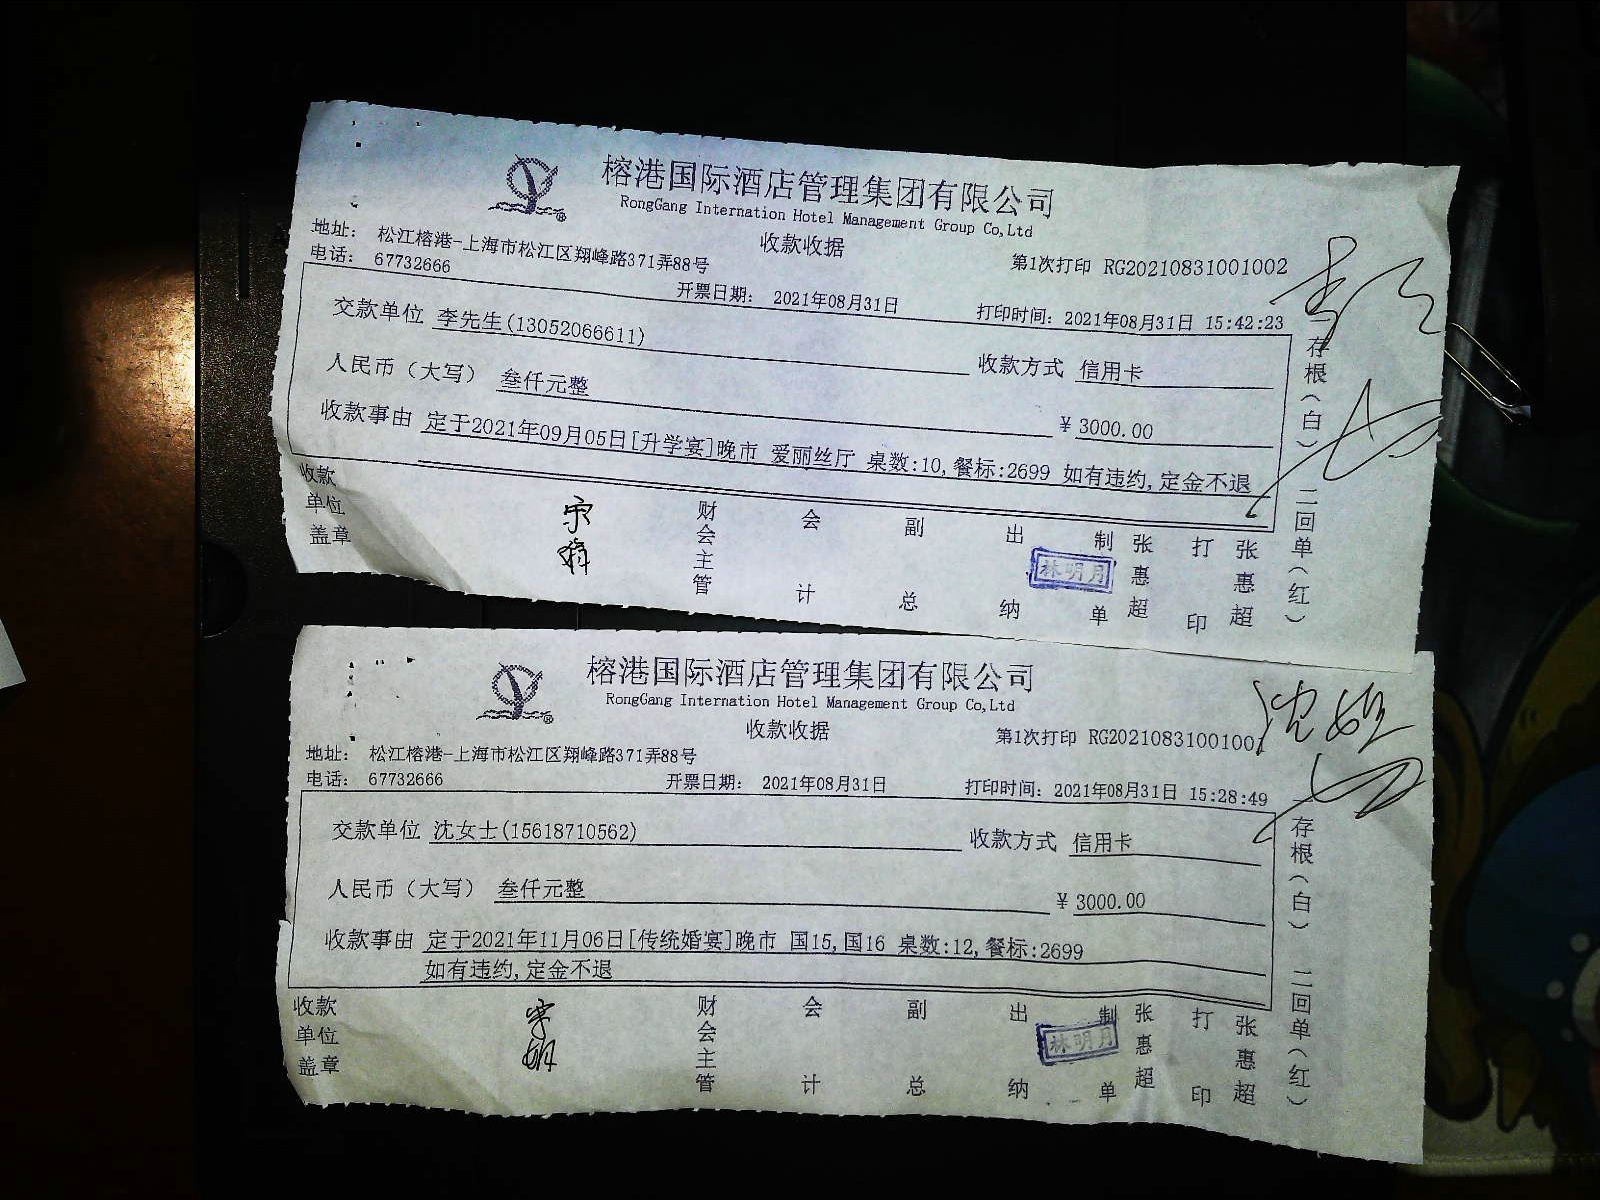 榕港国际酒店管理集团有限公司
RongGang Internation Hotel Management Group Co,Ltd
收款收据
地址： 松江榕港-上海市松江区翔峰路371弄88号
第1次打印 RG20210831001002
电话： 67732666
开票日期： 2021年08月31日
打印时间：2021年08月31日 15:42:23
交款单位 李先生(13052066611)
收款方式 信用卡
人民币（大写） 叁仟元整
¥ 3000.00
收款事由 定于2021年09月05日[升学宴]晚市 爱丽丝厅 桌数:10,餐标:2699 如有违约,定金不退
收款单位盖章
财会主管
会计
副总
出纳
林明月
制单 张惠超
打印 张惠超
一存根（白） 二回单（红）
榕港国际酒店管理集团有限公司
RongGang Internation Hotel Management Group Co,Ltd
收款收据
第1次打印 RG2021083100100
地址： 松江榕港-上海市松江区翔峰路371弄88号
电话： 67732666
开票日期： 2021年08月31日
打印时间：2021年08月31日 15:28:49
交款单位 沈女士(15618710562)
收款方式 信用卡
人民币（大写） 叁仟元整
¥ 3000.00
收款事由 定于2021年11月06日[传统婚宴]晚市 国15,国16 桌数:12,餐标:2699
如有违约,定金不退
收款单位盖章
财会主管
会计
副总
出纳
林明月
制单 张惠超
打印 张惠超
一存根（白） 二回单（红）